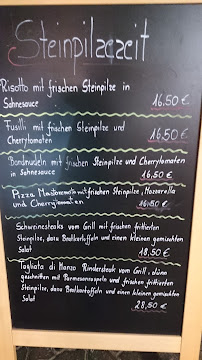 Steinpilzzeit
Risotto mit frischen Steinpilze in
Sahnesauce
16,50 €
Fusilli mit frischen Steinpilze und
Cherrytomaten
16,50 €
Bandnudeln mit frischen Steinpilze und Cherrytomaten
in Sahnesauce
16,50 €
Pizza mit frischen Steinpilze, Mozzarella
und Cherrytomaten
16,50 €
Schweinesteaks vom Grill mit frischen frittierten
Steinpilze, dazu Bratkartoffeln und einen kleinen gemischten
Salat
18,50 €
Tagliata di Manzo Rindersteak vom Grill, dünn
geschnitten mit Parmesanraspeln und frischen frittierten
Steinpilze, dazu Bratkartoffeln und einen kleinen gemischten
Salat
28,50 €